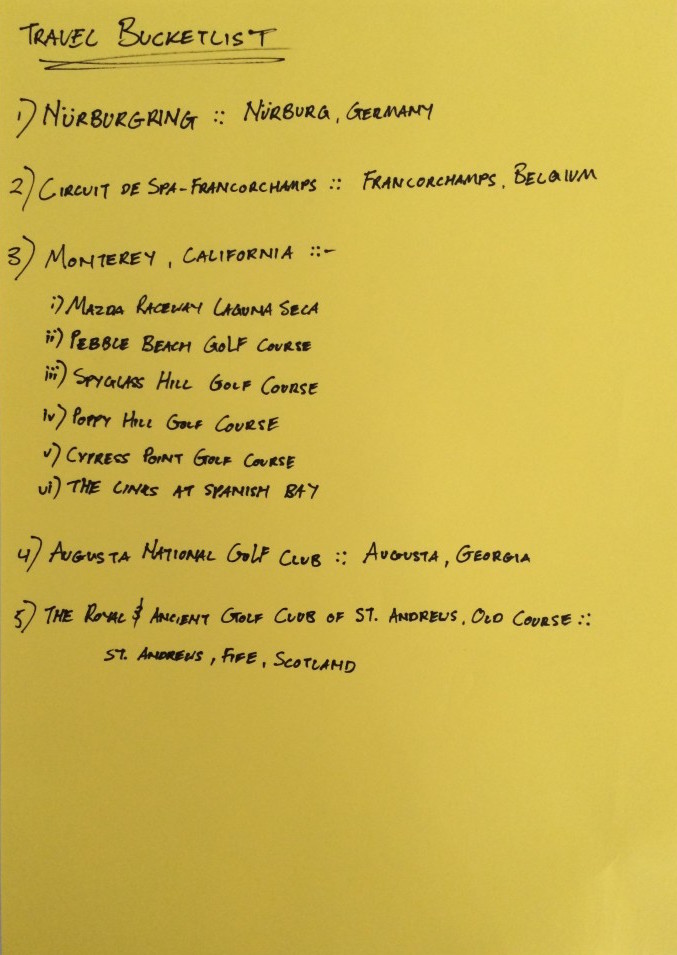 TRAVEL BUCKETLIST
1) NÜRBURGRING :: NÜRBURG, GERMANY
2) CIRCUIT DE SPA-FRANCORCHAMPS :: FRANCORCHAMPS, BELGIUM
3) MONTEREY, CALIFORNIA ::-
i) MAZDA RACEWAY LAGUNA SECA
ii) PEBBLE BEACH GOLF COURSE
iii) SPYGLASS HILL GOLF COURSE
iv) POPPY HILL GOLF COURSE
v) CYPRESS POINT GOLF COURSE
vi) THE LINKS AT SPANISH BAY
4) AUGUSTA NATIONAL GOLF CLUB :: AUGUSTA, GEORGIA
5) THE ROYAL & ANCIENT GOLF CLUB OF ST. ANDREWS, OLD COURSE ::
ST. ANDREWS, FIFE, SCOTLAND